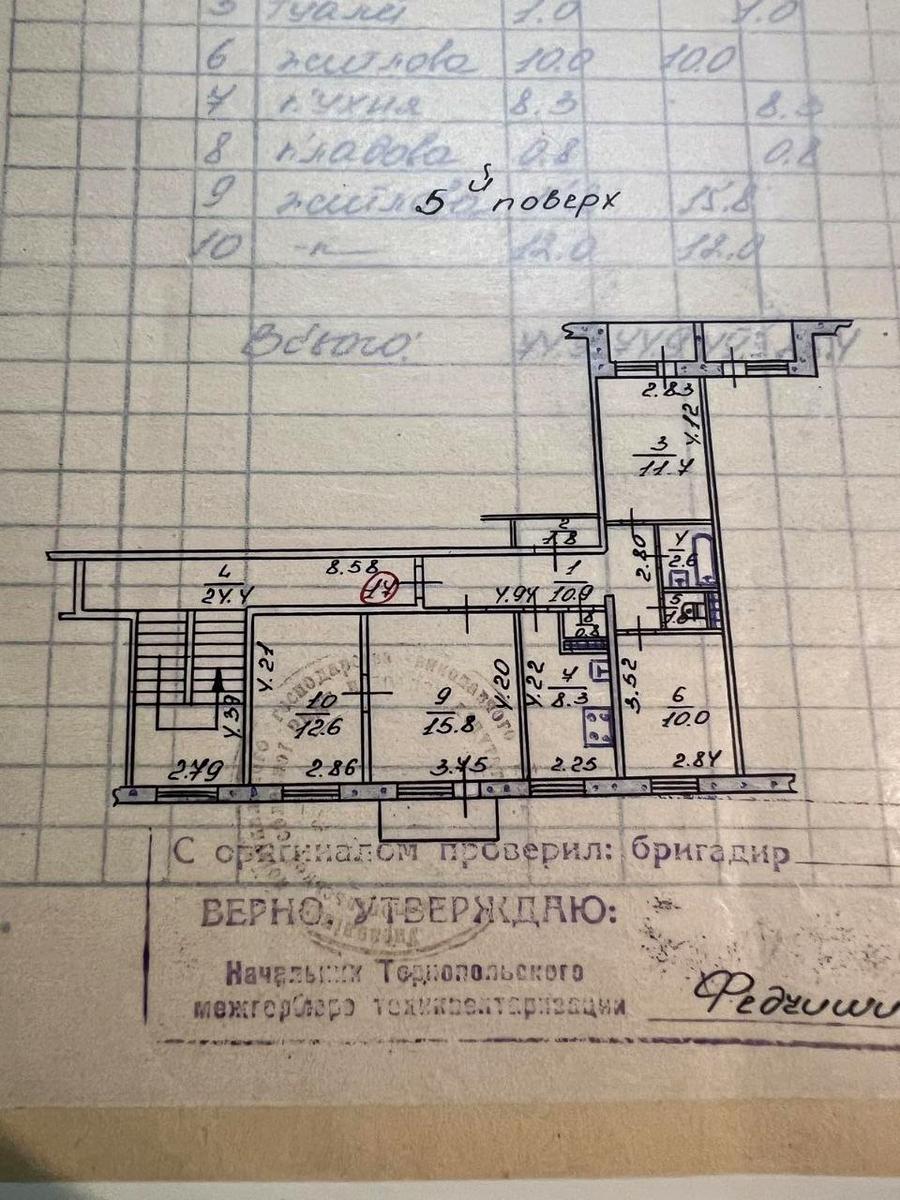 5 Туале 1.0 1.0
6 житлова 10.0 10.0
7 кухня 8.3 8.3
8 кладова 0.8 0.8
9 житлова 15.8
5й поверх
10 -"- 12.0 12.0
Всього:
2.83
4.12
3
11.7
2
1.8
2.80
4
2.6
4
24.4
8.58
17
1
4.94 10.9
5
1.0
8
0.8
4.21
10
12.6
9
15.8
4.20
4.22
7
8.3
3.52
6
10.0
4.39
2.79
2.86
3.75
2.25
2.84
С оригиналом проверил: бригадир
ВЕРНО. УТВЕРЖДАЮ:
Начальник Тернопольского
межгорбюро техинвентаризации